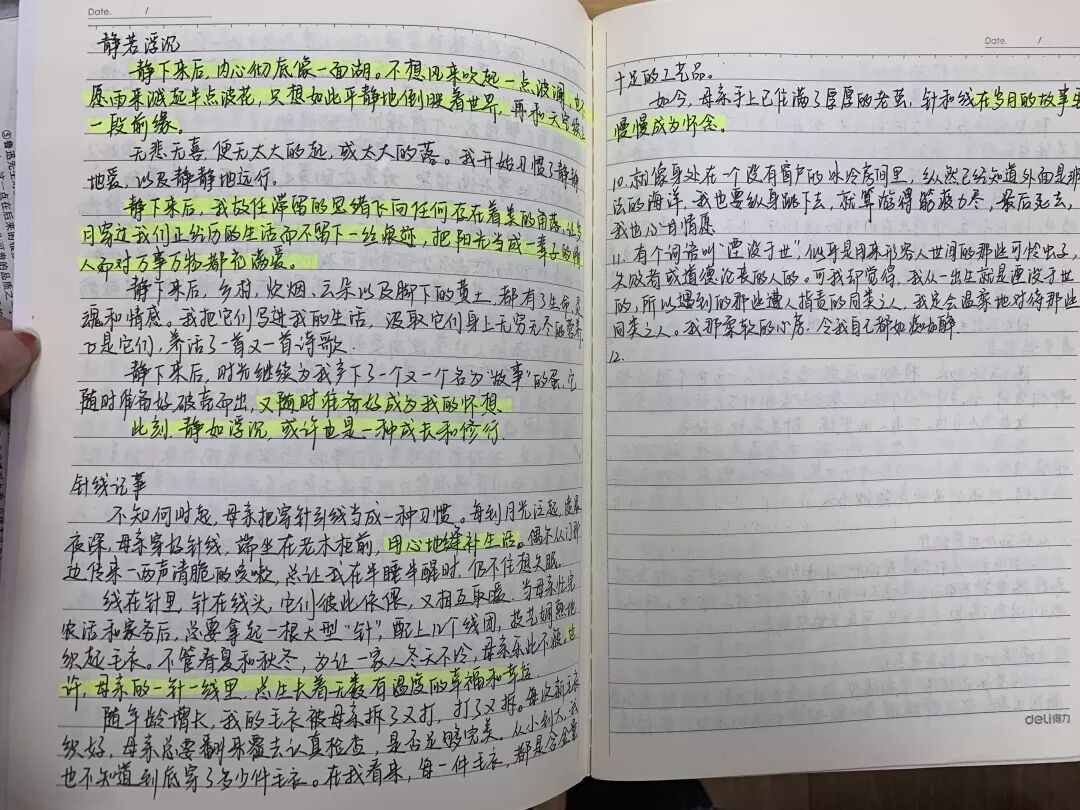 Date. /
静若浮沉
静下来后,内心彻底像一面湖。不想风来吹起一点波澜,也不
愿雨来溅起半点波花,只想如此平静地倒映着世界,再和天空续上
一段前缘。
无悲无喜,便无太大的起,或太大的落。我开始习惯了静静
地爱,以及静静地远行。
静下来后,我放任滞留的思绪飞向任何存在着美的角落,让岁
月穿过我们正经历的生活而不留下一丝痕迹,把阳光当成一辈子的情
人而对万事万物都充满爱。
静下来后,乡村、炊烟、云朵以及脚下的黄土,都有了生命、灵
魂和情感。我把它们写进我的生活,汲取它们身上无穷无尽的营养,
乃是它们,养活了一首又一首诗歌。
静下来后,时光继续为我产下了一个又一个名为“故事”的蛋,它
随时准备好破壳而出,又随时准备好成为我的怀想。
此刻,静如浮沉,或许也是一种成长和修行。
针线记事
不知何时起,母亲把穿针引线当成一种习惯。每到月光泛起,凌晨
夜深,母亲穿好针线,端坐在老木柜前,用心地缝补生活。偶尔从门那
边传来一两声清脆的咳嗽,总让我在半睡半醒时,仍不住想失眠。
线在针里,针在线头,它们彼此依偎,又相互取暖。当母亲忙完
农活和家务后,总要拿起一根大型“针”,配上几个线团,技艺娴熟地
织起毛衣。不管春夏和秋冬,为让一家人冬天不冷,母亲乐此不疲。也
许,母亲的一针一线里,总生长着无数有温度的幸福和幸运。
随年龄增长,我的毛衣被母亲拆了又打,打了又拆。每次新毛衣
织好,母亲总要翻来覆去认真检查,是否足够完美。从小到大,我
也不知道到底穿了多少件毛衣。在我看来,每一件毛衣,都是含金量
Date. /
十足的工艺品。
如今,母亲手上已住满了厚厚的老茧,针和线在岁月的故事里
慢慢成为怀念。
10.就像身处在一个没有窗户的冰冷房间里,纵然已经知道外面是非
法的海洋,我也要纵身跳下去,就算游得筋疲力尽,最后死去,
我也心甘情愿
11.有个词语叫“湮没于世”,似乎是用来形容人世间的那些可怜虫子,
失败者或道德沦丧的人的。可我却觉得,我从一出生就是湮没于世
的,所以遇到的那些遭人指责的同类之人,我定会温柔地对待那些
同类之人。我那柔软的心房,令我自己都如痴如醉.
12.
deli得力